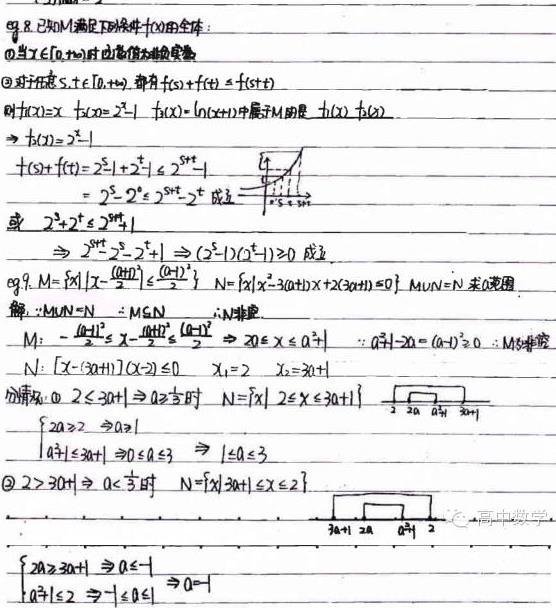 eg.8. 已知M满足下列条件f(x)的全体:
①当x∈[0,+∞)时 函数值为非负实数
②对于任意S.t∈[0,+∞) 都有f(s)+f(t)≤f(s+t)
则f₁(x)=x f₂(x)=2ˣ-1 f₃(x)=ln(x+1)中属于M的是 f₁(x) f₂(x)
⇒ f₂(x)=2ˣ-1
f(s)+f(t)=2ˢ-1+2ᵗ-1≤2ˢ⁺ᵗ-1
= 2ˢ-2⁰≤2ˢ⁺ᵗ-2ᵗ 成立
0 s t s+t
或 2ˢ+2ᵗ≤2ˢ⁺ᵗ+1
⇒ 2ˢ⁺ᵗ-2ˢ-2ᵗ+1 ⇒(2ˢ-1)(2ᵗ-1)≥0 成立
eg.9. M={x| |x-(a+1)²/2|≤(a-1)²/2} N={x|x²-3(a+1)x+2(3a+1)≤0} M∪N=N 求a范围
解: ∵M∪N=N ∴M⊆N ∴N非空
M: -(a-1)²/2≤x-(a+1)²/2≤(a-1)²/2 ⇒ 2a≤x≤a²+1 ∵a²+1-2a=(a-1)²≥0 ∴M为非空
N: [x-(3a+1)](x-2)≤0 x₁=2 x₂=3a+1
分情况: ① 2≤3a+1⇒a≥1/3时 N={x| 2≤x≤3a+1}
2 2a a²+1 3a+1
{2a≥2 ⇒a≥1
a²+1≤3a+1 ⇒0≤a≤3 ⇒ 1≤a≤3
② 2>3a+1⇒a<1/3时 N={x|3a+1≤x≤2}
3a+1 2a a²+1 2
高中数学
{2a≥3a+1 ⇒a≤-1
a²+1≤2 ⇒-1≤a≤1 ⇒a=-1